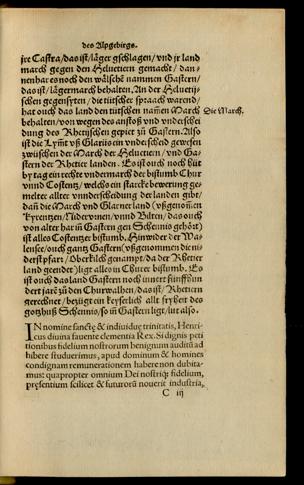 des Alpgebirgs.
jre Castra/das ist/läger gschlagen/vnd jr land
march gegen den Heluetiern gemacht/dan⸗
nenhar es noch den wälschē nammen Gastern/
das ist/lägermarch behalten. An der Heluetij⸗
schen gegensyten/die tütscher spraach warend/
hat ouch das land den tütschē namē March
Die March.
behalten/von wegen des anstoß vnd vnderschei
dung des Rhetischen gepiet zů Gastern. Also
ist die Lymt vß Glariß ein vnderscheid gewesen
zwüschen der March der Heluetiern/vnd Ga⸗
stern der Rhetier landen. Es ist ouch noch hüt
by tag ein rechte vndermarch der bistumb Chur
vnnd Costentz/welchs ein starcke bewerung ge⸗
melter allter vnnderscheidung der landen gibt/
dañ die March vnd Glarner land (vßgenomēn
Kyrentzen/Niderurnen/vnnd Bilten/das ouch
von alter har in Gastern gen Schennis gehört)
ist alles Costentzer bistumb. Hinwider der Wa⸗
lensee/ouch gantz Gastern (vßgenommen die ni⸗
derst pfarr/Oberkilch genampt/da der Rhetier
land geendet) ligt alles in Churer bistumb. Es
ist ouch das land Gastern noch innert fünffhun
dert jarē zů den Churwalhen/das ist/Rhetiern
gerechnet/bezügt ein keyserlich allt fryheit des
gotzhuß Schennis/so in Gastern ligt/lut also.
IN nomine sanctę & indiuiduę trinitatis, Henri⸗
cus diuina fauente clementia Rex. Si dignis peti
tionibus fidelium nostrorum benignum auditū ad
hibere studuerimus, apud dominum & homines
condignam remunerationem habere non dubita⸗
mus: quapropter omnium Dei nostriq; fidelium,
pręsentium scilicet & futurorū nouerit industria,
C iij